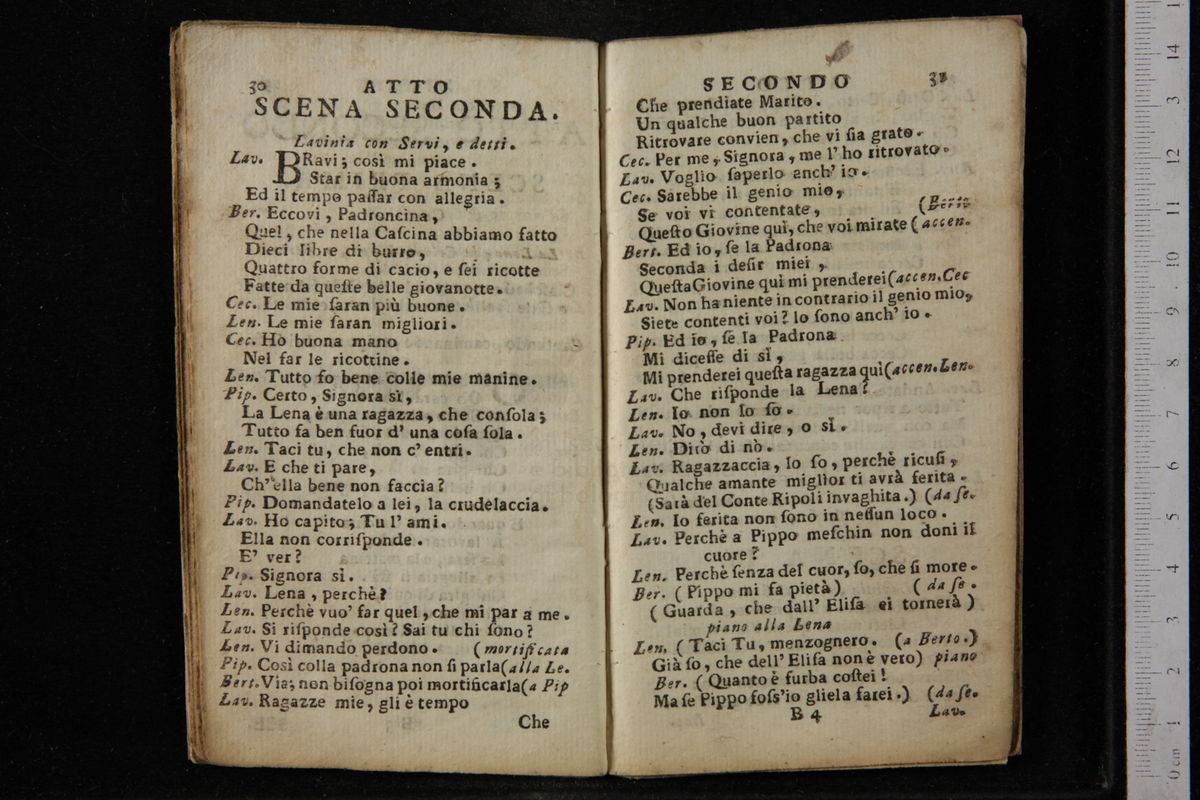 30 ATTO
SCENA SECONDA.
Lavinia con Servi, e detti.
Lav. BRavi; così mi piace.
Star in buona armonia;
Ed il tempo paſſar con allegria.
Ber. Eccovi, Padroncina,
Quel, che nella Caſcina abbiamo fatto
Dieci libre di burro,
Quattro forme di cacio, e ſei ricotte
Fatte da queſte belle giovanotte.
Cec. Le mie ſaran più buone.
Len. Le mie ſaran migliori.
Cec. Ho buona mano
Nel far le ricottine.
Len. Tutto fo bene colle mie manine.
Pip. Certo, Signora sì,
La Lena è una ragazza, che conſola;
Tutto fa ben fuor d' una coſa ſola.
Len. Taci tu, che non c' entri.
Lav. E che ti pare,
Ch' ella bene non faccia?
Pip. Domandatelo a lei, la crudelaccia.
Lav. Ho capito; Tu l' ami.
Ella non corriſponde.
E' ver?
Pip. Signora sì.
Lav. Lena, perchè?
Len. Perchè vuo' far quel, che mi par a me.
Lav. Si riſponde così? Sai tu chi ſono?
Len. Vi dimando perdono. (mortificata
Pip. Così colla padrona non ſi parla (alla Le.
Bert. Via; non biſogna poi mortificarla (a Pip
Lav. Ragazze mie, gli è tempo
Che
SECONDO 31
Che prendiate Marito.
Un qualche buon partito
Ritrovare convien, che vi ſia grato.
Cec. Per me, Signora, me l' ho ritrovato.
Lav. Voglio ſaperlo anch' io.
Cec. Sarebbe il genio mio,
Se voi vi contentate, (Berto
Queſto Giovine quì, che voi mirate (accen.
Bert. Ed io, ſe la Padrona
Seconda i deſir miei,
Queſta Giovine quì mi prenderei (accen. Cec
Lav. Non ha niente in contrario il genio mio,
Siete contenti voi? lo ſono anch' io.
Pip. Ed io, ſe la Padrona
Mi diceſſe di sì,
Mi prenderei queſta ragazza quì (accen. Len.
Lav. Che riſponde la Lena?
Len. Io non lo ſo.
Lav. No, devi dire, o sì.
Len. Dirò di nò.
Lav. Ragazzaccia, lo ſo, perchè ricuſi,
Qualche amante miglior ti avrà ferita.
(Sarà del Conte Ripoli invaghita.) (da ſe.
Len. Io ferita non ſono in neſſun loco.
Lav. Perchè a Pippo meſchin non doni il
cuore?
Len. Perchè ſenza del cuor, ſo, che ſi more.
Ber. (Pippo mi fa pietà) (da ſe.
(Guarda, che dall' Eliſa ei tornerà)
piano alla Lena
Len. (Taci Tu, menzognero. (a Berto.)
Già ſo, che dell' Eliſa non è vero) piano
Ber. (Quanto è furba coſtei!
Ma ſe Pippo foſs'io gliela farei.) (da ſe.
B 4 Lav.
0 cm 1 2 3 4 5 6 7 8 9 10 11 12 3 14